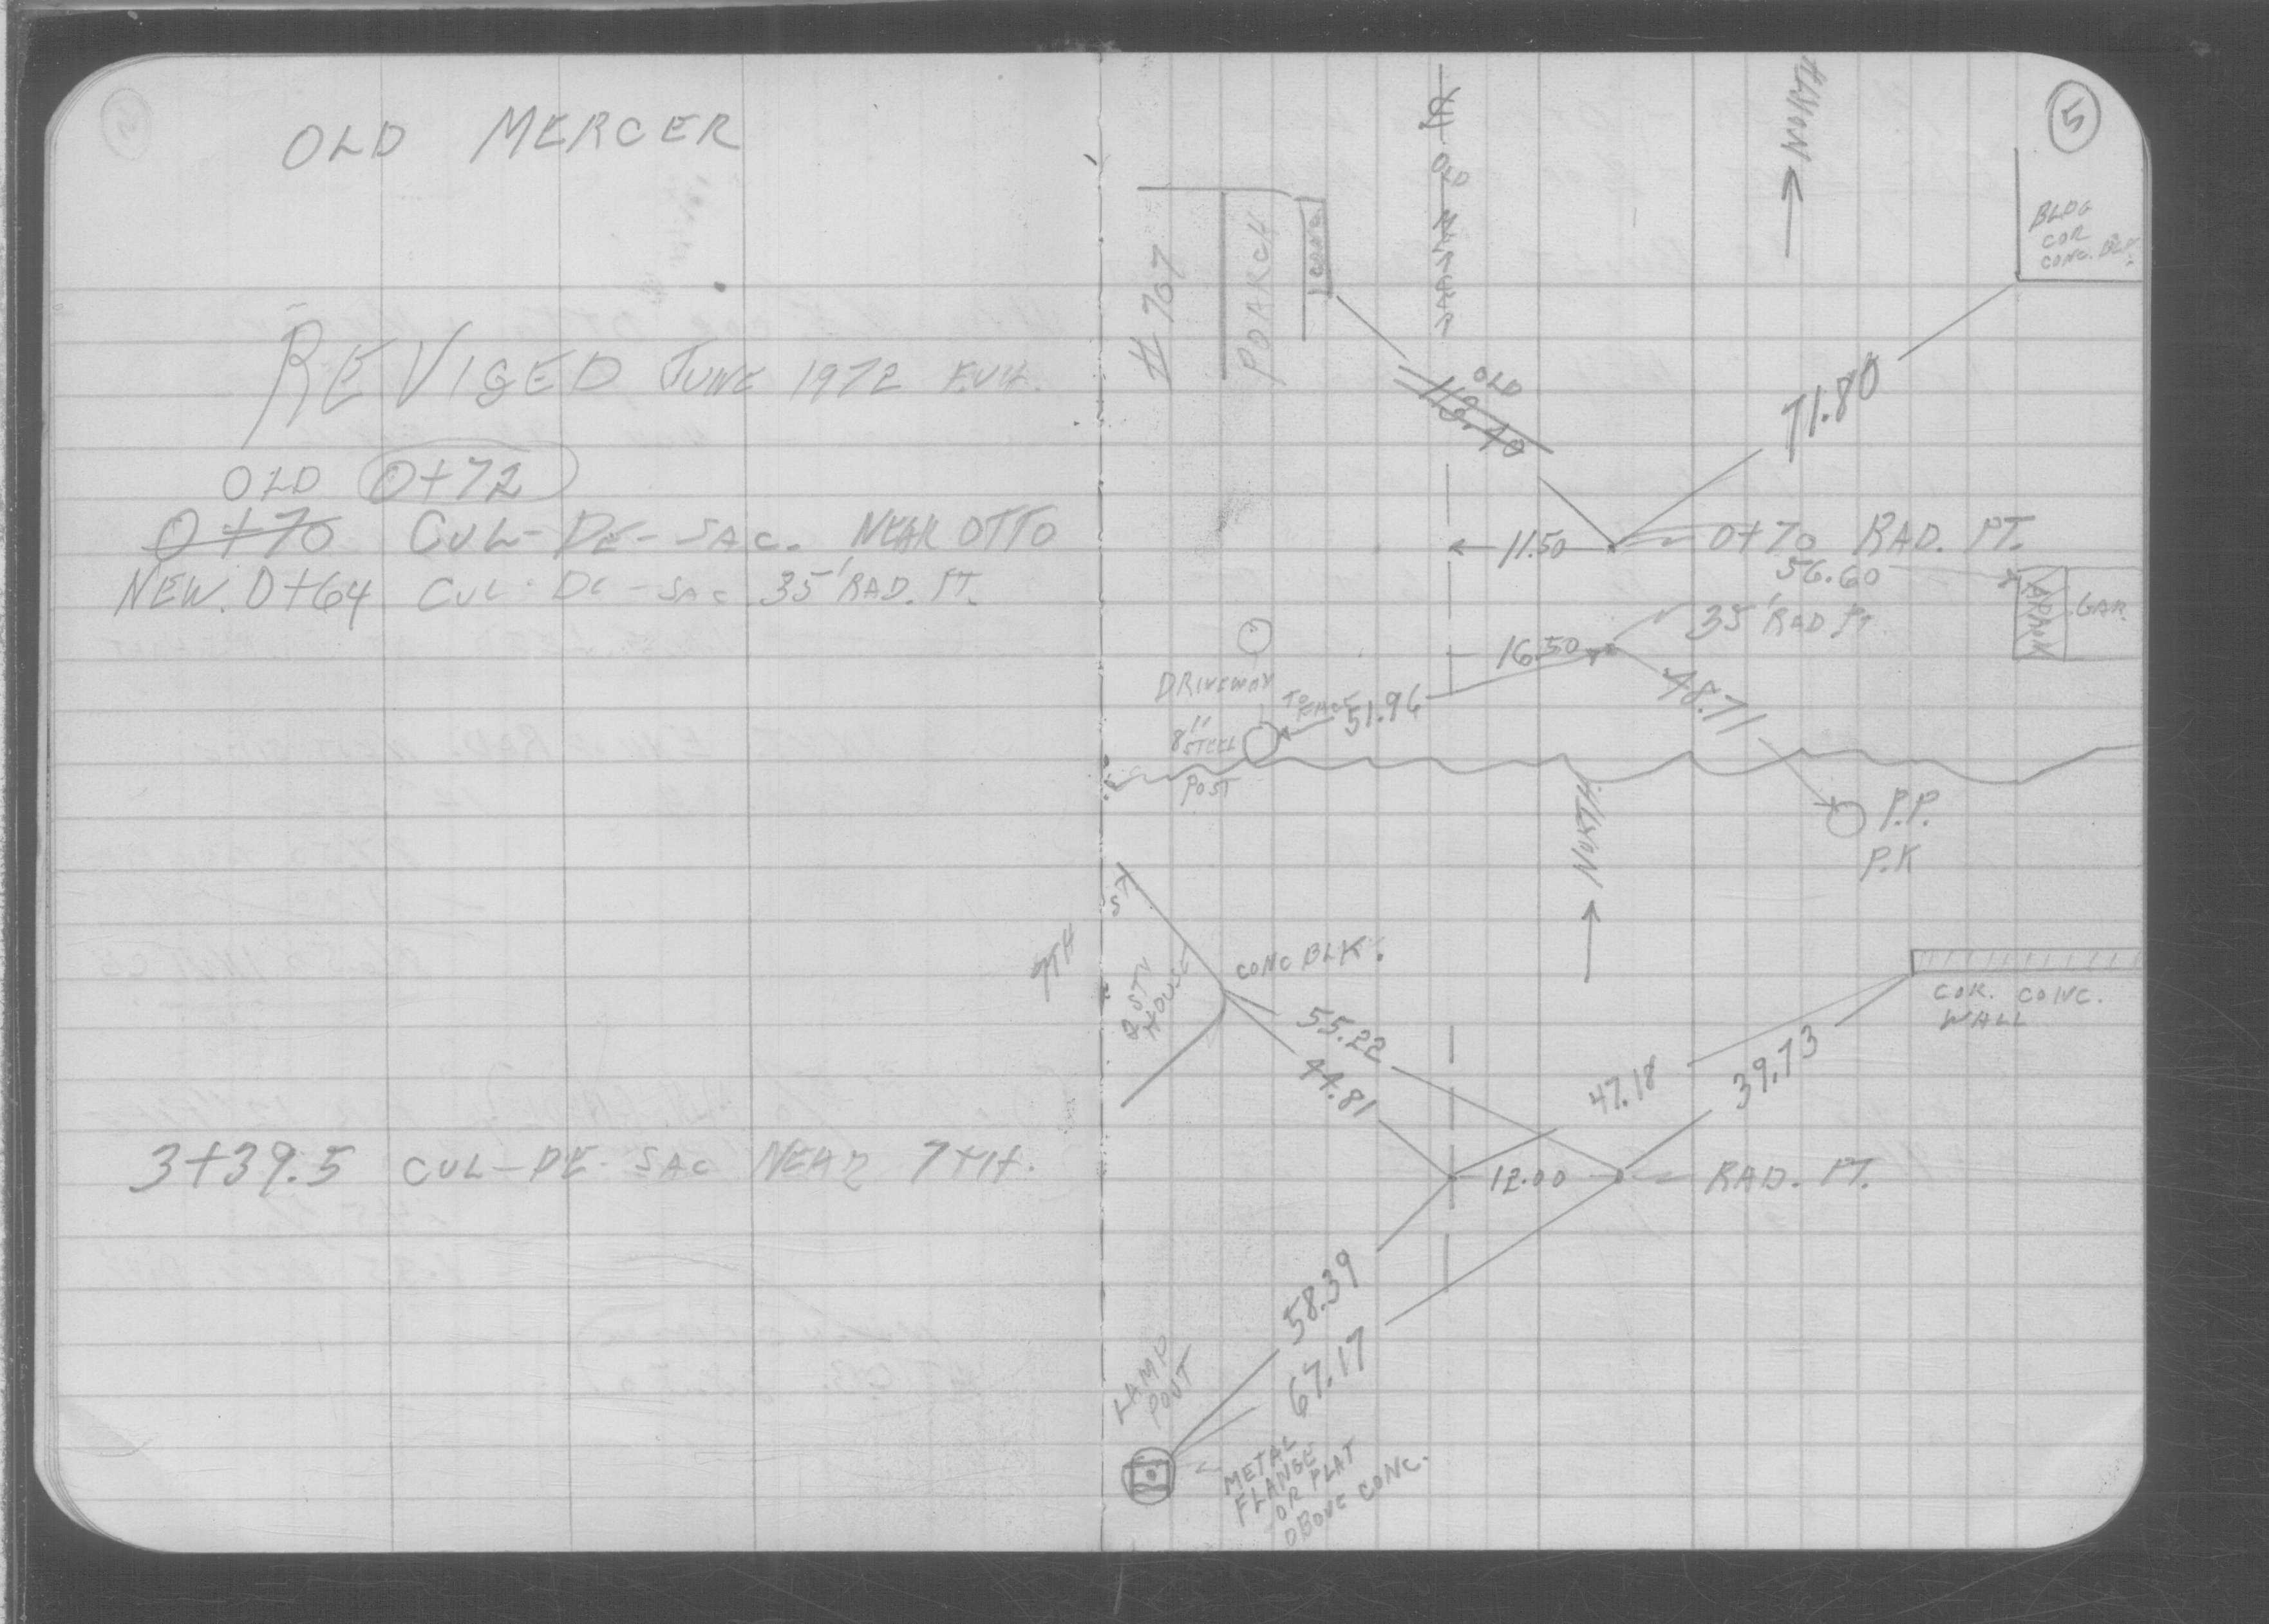 OLD MERCER
REVISED JUNE 1972
OLD 0+72
0+70 CUL-DE-SAC. NEAR OTTO
NEW. 0+64 CUL-DE-SAC 35' RAD. PT.
3+39.5 CUL-DE-SAC NEAR 7TH.
5
NORTH
OLD MERCER
BLDG
COR
CONC. BLK.
# 767
POARCH
CONC.
OLD
113.40
71.80
11.50
0+70 RAD. PT.
56.60
APRON
GAR.
35' RAD PT
16.50
DRIVEWAY
TO FACE
51.96
48.71
8" STEEL
POST
P.P.
P.K
NORTH
7TH ST
2 STY
HOUSE
CONC BLK.
COR. CONC.
WALL
55.22
44.81
47.18
39.73
12.00
RAD. PT.
58.39
67.17
LAMP
POST
METAL
FLANGE
OR PLAT
OBOVE CONC.